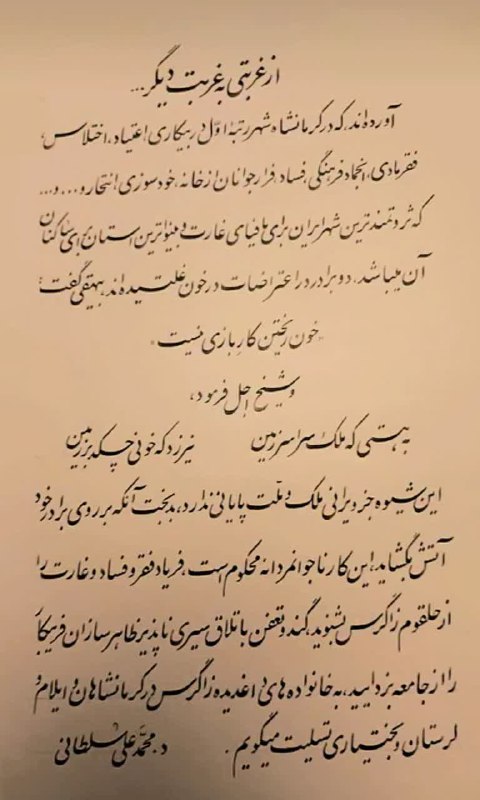 از غربتی به غربت دیگر...
آورده‌اند، که در کرمانشاه شهر رتبهٔ اوّل در بیکاری، اعتیاد، اختلاس،
فقر مادی، انجماد فرهنگی، فساد، فرار جوانان از خانه، خودسوزی، انتحار و... و...
که ثروتمندترین شهر ایران برای مافیای غارت و بینواترین استان برای ساکنان
آن میباشد، دو برادر در اعتراضات در خون غلتیده‌اند، بیهقی گفت:
«خون ریختن کار بازی نیست»
و شیخ اجل فرمود،
به هستی که ملک سراسر زمین نیرزد که خونی چکد بر زمین
این شیوه جز ویرانی ملک و ملت پایانی ندارد، بدبخت آنکه بر روی برادر خود
آتش بگشاید، این کار ناجوانمردانه محکوم است، فریاد فقر و فساد و غارت را
از حلقوم زاگرس بشنوید، گند و تعفن باتلاق سیری ناپذیر ظاهرسازان فریبکار
را از جامعه بزدایید، به خانواده‌های داغدیده زاگرس در کرمانشاهان و ایلام و
لرستان و بختیاری تسلیت میگویم. د. محمدعلی سلطانی